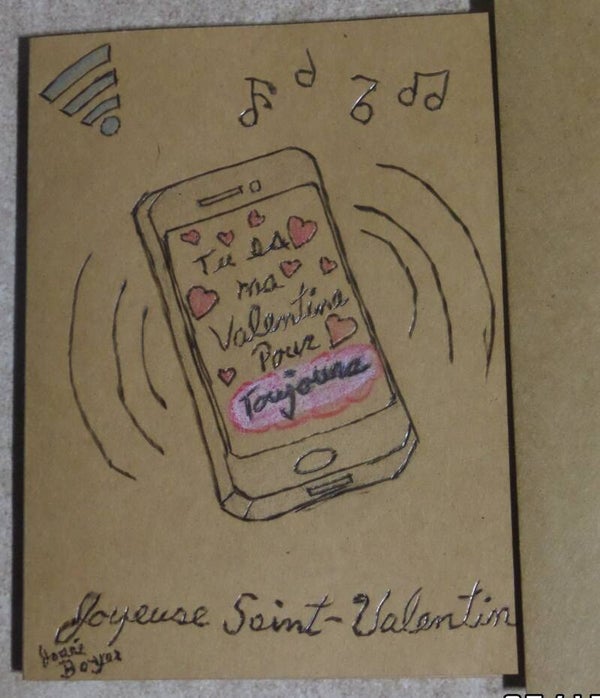 Tu es
ma
Valentine
Pour
Toujours
Joyeuse Saint-Valentin